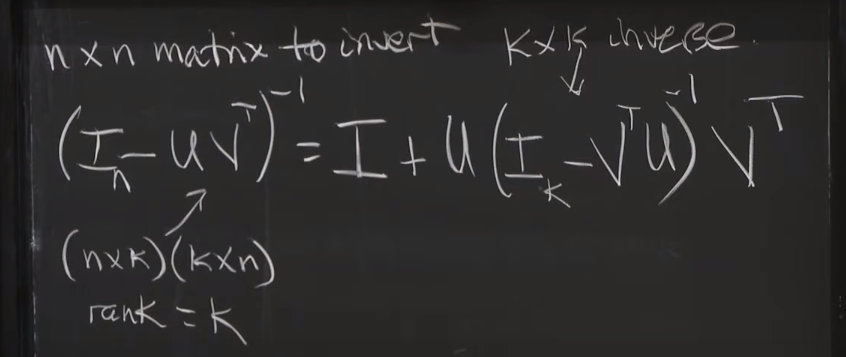 n×n matrix to invert k×k inverse.
(Iₙ - UVᵀ)⁻¹ = I + U(Iₖ - VᵀU)⁻¹Vᵀ
(n×k)(k×n)
rank = k